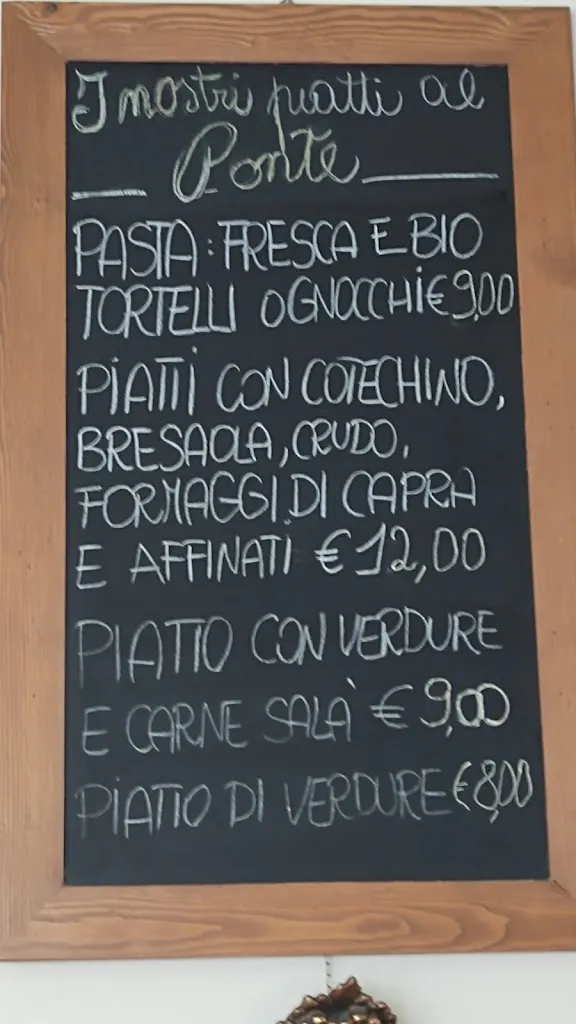 I nostri piatti al
Ponte
PASTA: FRESCA E BIO
TORTELLI O GNOCCHI € 9,00
PIATTI CON COTECHINO,
BRESAOLA, CRUDO,
FORMAGGI DI CAPRA
E AFFINATI € 12,00
PIATTO CON VERDURE
E CARNE SALÀ € 9,00
PIATTO DI VERDURE € 8,00